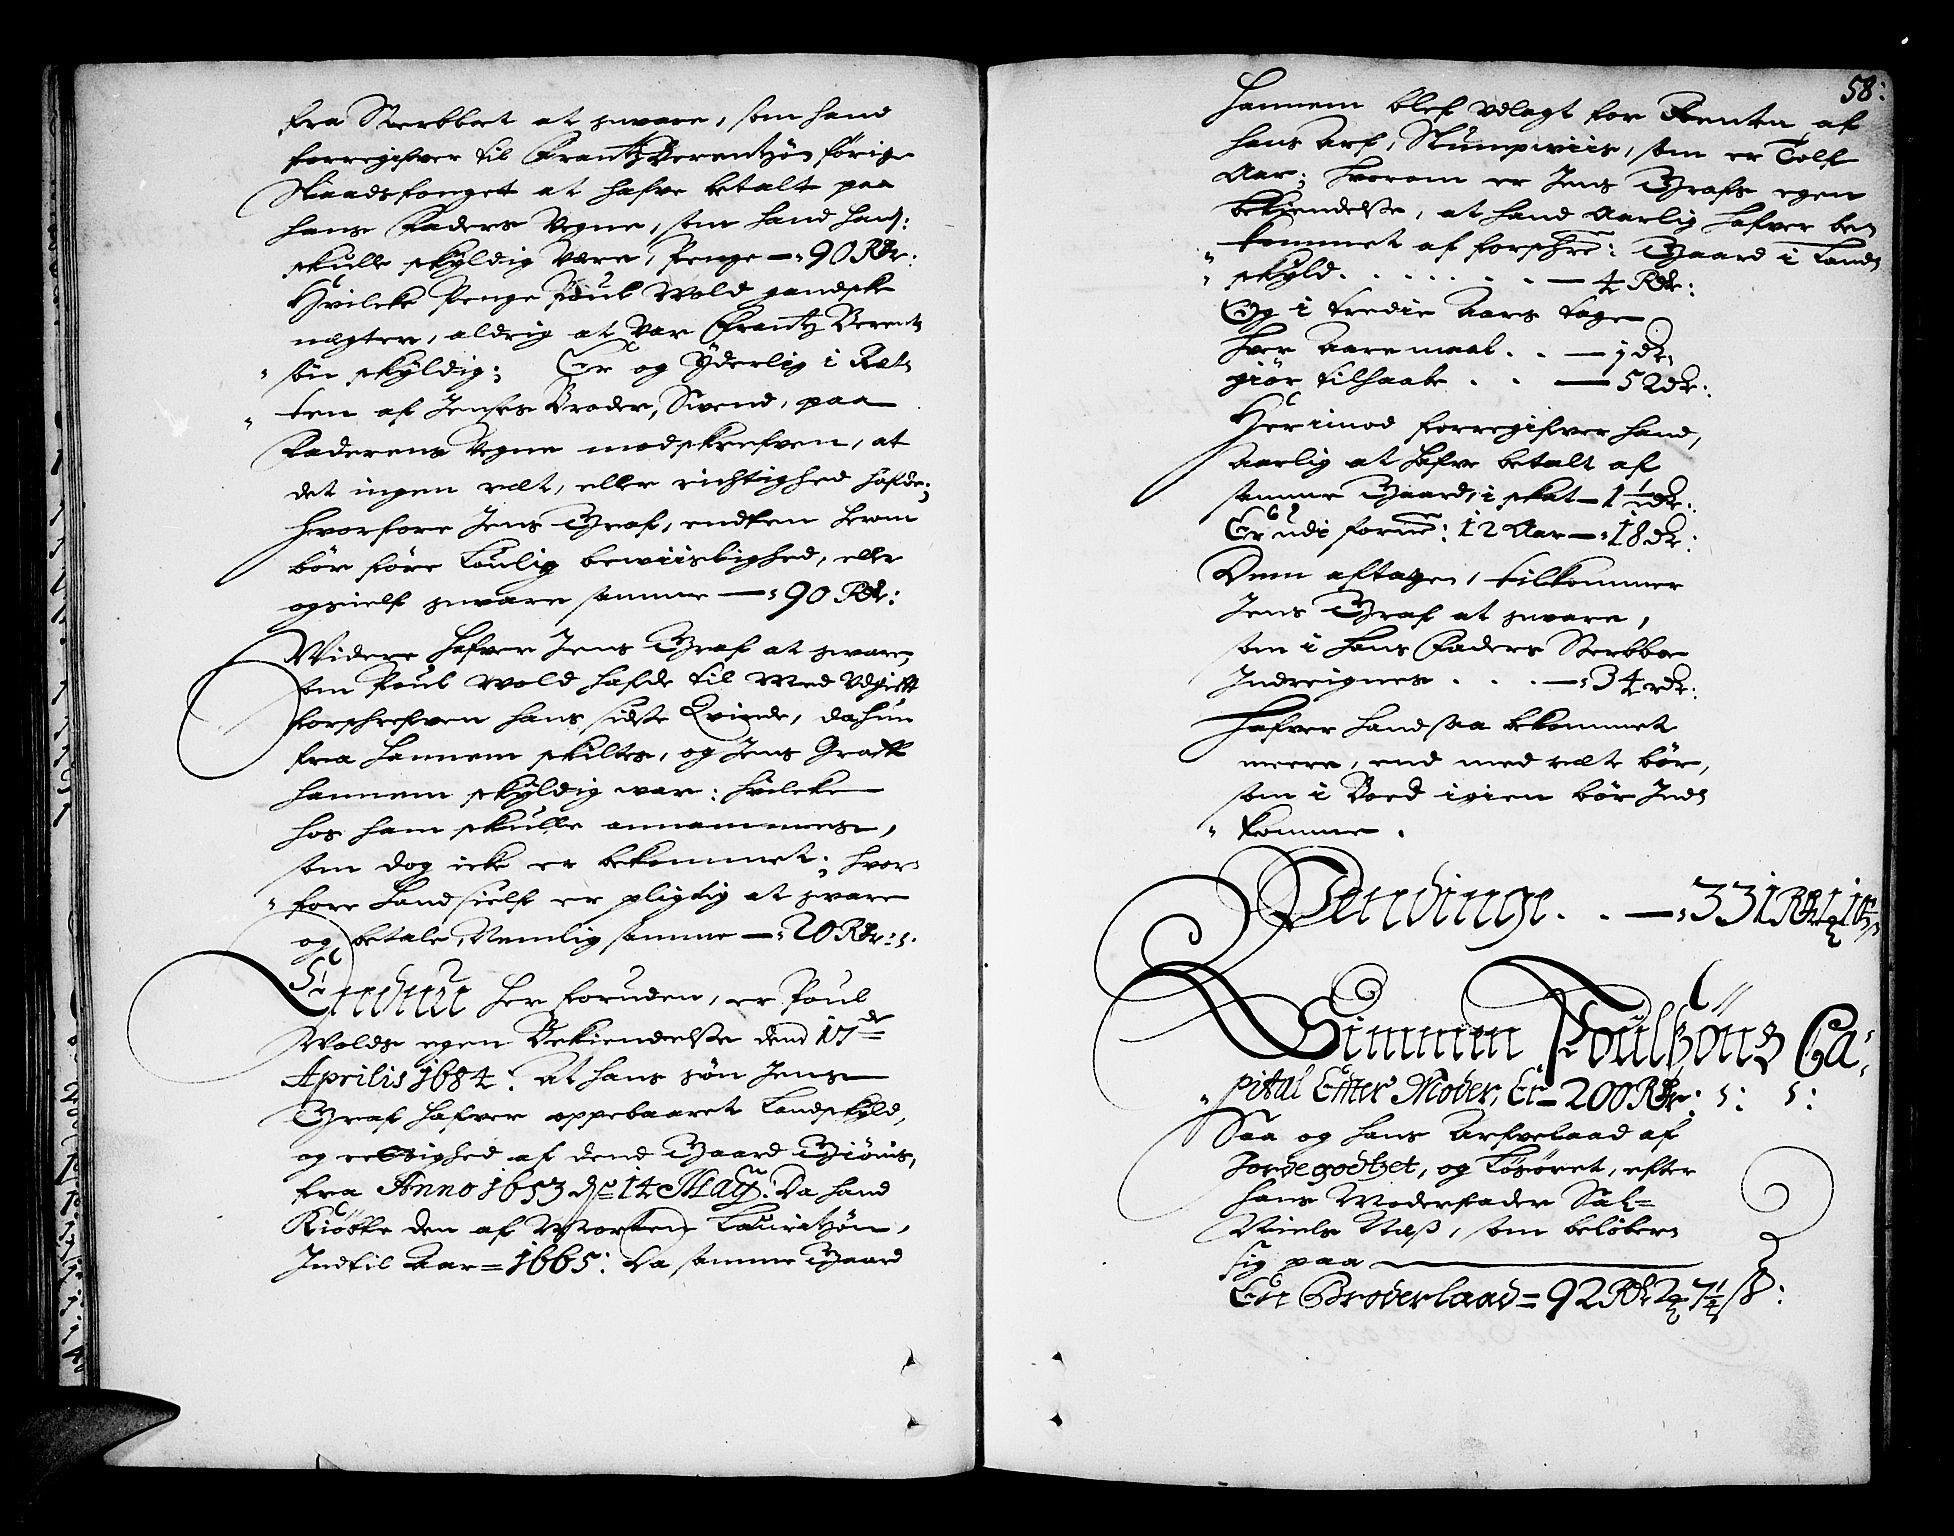 fra Sterbboet at svare, som hand
forregifver til Frantz Berentzøn forige
Skaadsfonget at hafve betalt paa
hans Faders Vegne, som hand hand:
skulle skyldig være, Penge — 90 Rdr:
Hvilcke Penge Poul Wold gandske
nægter, aldrig at var Frantz Berentz
søn skyldig; Er og Yderlig i Ret-
ten af Jenses Broder, Svend, paa
Faderens Vegne modskrefven, at
det ingen ræt, eller richtighed hafde;
hvorfore Jens Graf, endten herom
bør føre Loulig bewiislighed, eller
ogsielf svare samme — 90 Rdr:
Widere hafver Jens Graf at svare,
som Poul Wold hafde til Med Udgift
forschrefven hans sidste Qvinde, da hun
fra hannem skiltes, og Jens Graff
hannem skyldig war: hvilcke
hos ham skulle annammes,
som dog icke er bekommet; hvor-
fore hand sielf er pligtig at svare
og betale, Nemlig samme — 20 Rdr: s.
Endnu her foruden, er Poul
Wolds egen Bekiendelse dend 17de
Aprilis 1684: At hans søn Jens
Graf hafver oppebaaret Landskyld,
og rettighed af dend Gaard Giøius,
fra Anno 1653 de 14 Maij: Da hand
Kiøbte den af Morten Lauritzøn,
Indtil Aar = 1665: Da samme Gaard
58:
Hannem blef udlagt for Renten af
hans Arf, Stumpwiis, som er Tolf
Aar; hvorom er Jens Grafs egen
bekiendelse, at hand Aarlig hafver be-
kommet af forschne: Gaard i Land-
skyld . . . . . . — 4 Rdr:
Og i tredie Aars tage
hver Aaremaal . . — 1 dr:
giør tilsaabe . . — 52 dr:
Herimod forregifver hand,
Aarlig at hafve betalt af
samme Gaard, i skat — 1½ dr:
Er udi forne: 12 Aar — 18 dr:
Dem aftagen, tilkommer
Jens Graf at svare,
som i hans Faders Sterbboe
Indreignes . . . — 34 rdr:
Hafver hand saa bekommet
meere, end med ræte bør,
som i Boed igien bør Ind-
komme.
Pendinge . . — 331 Rdr
Simmen Poulßøns Ca-
pital Effter Moder, Er = 200 Rdr: s: s:
Saa og hans Arfvelaad af
Jordegodtzet, og Løsøret, efter
hans Moderfader Sal=
Niels Naß, som beløber
sig paa
Een Broderlaad = 92 Rdr 2 ₰ 7¼ ß: